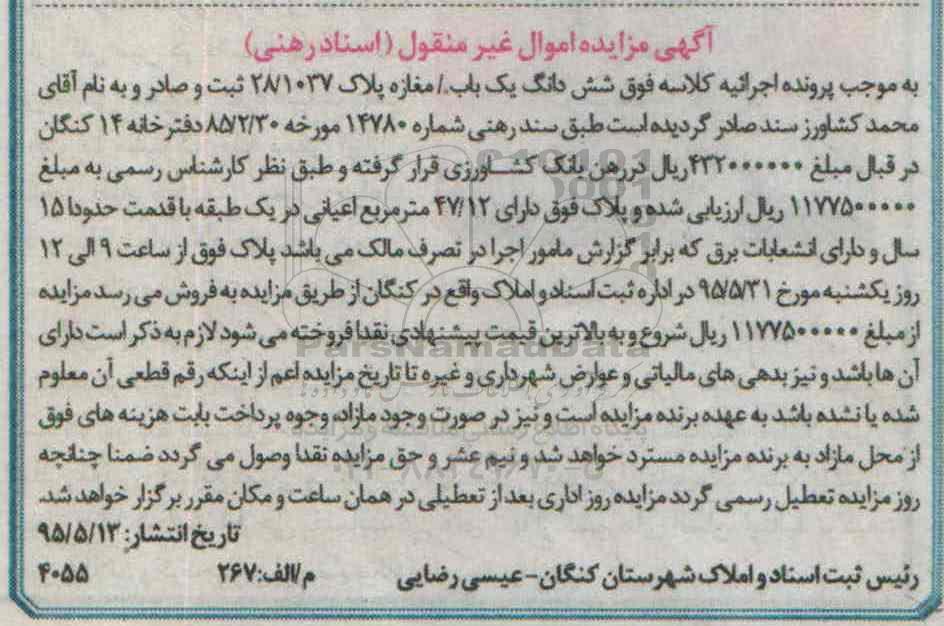 آگهی مزایده اموال غیر منقول (اسناد رهنی)
به موجب پرونده اجرائیه کلاسه فوق شش دانگ یک باب./مغازه پلاک ۲۸/۱۰۳۷ ثبت و صادر و به نام آقای
محمد کشاورز سند صادر گردیده است طبق سند رهنی شماره ۱۴۷۸۰ مورخه ۸۵/۲/۳۰ دفترخانه ۱۴ کنگان
در قبال مبلغ ۴۳۲۰۰۰۰۰۰ ریال در رهن بانک کشاورزی قرار گرفته و طبق نظر کارشناس رسمی به مبلغ
۱۱۷۷۵۰۰۰۰۰ ریال ارزیابی شده و پلاک فوق دارای ۴۷/۱۲ متر مربع اعیانی در یک طبقه با قدمت حدودا ۱۵
سال و دارای انشعابات برق که برابر گزارش مامور اجرا در تصرف مالک می باشد پلاک فوق از ساعت ۹ الی ۱۲
روز یکشنبه مورخ ۹۵/۵/۳۱ در اداره ثبت اسناد و املاک واقع در کنگان از طریق مزایده به فروش می رسد مزایده
از مبلغ ۱۱۷۷۵۰۰۰۰۰ ریال شروع و به بالاترین قیمت پیشنهادی نقدا فروخته می شود لازم به ذکر است دارای
آن ها باشد و نیز بدهی های مالیاتی و عوارض شهرداری و غیره تا تاریخ مزایده اعم از اینکه رقم قطعی آن معلوم
شده یا نشده باشد به عهده برنده مزایده است و نیز در صورت وجود مازاد، وجوه پرداخت بابت هزینه های فوق
از محل مازاد به برنده مزایده مسترد خواهد شد و نیم عشر و حق مزایده نقدا وصول می گردد ضمنا چنانچه
روز مزایده تعطیل رسمی گردد مزایده روز اداری بعد از تعطیلی در همان ساعت و مکان مقرر برگزار خواهد شد.
تاریخ انتشار: ۹۵/۵/۱۳
رئیس ثبت اسناد و املاک شهرستان کنگان-عیسی رضایی م/الف:۲۶۷ ۴۰۵۵
ParsNamadData